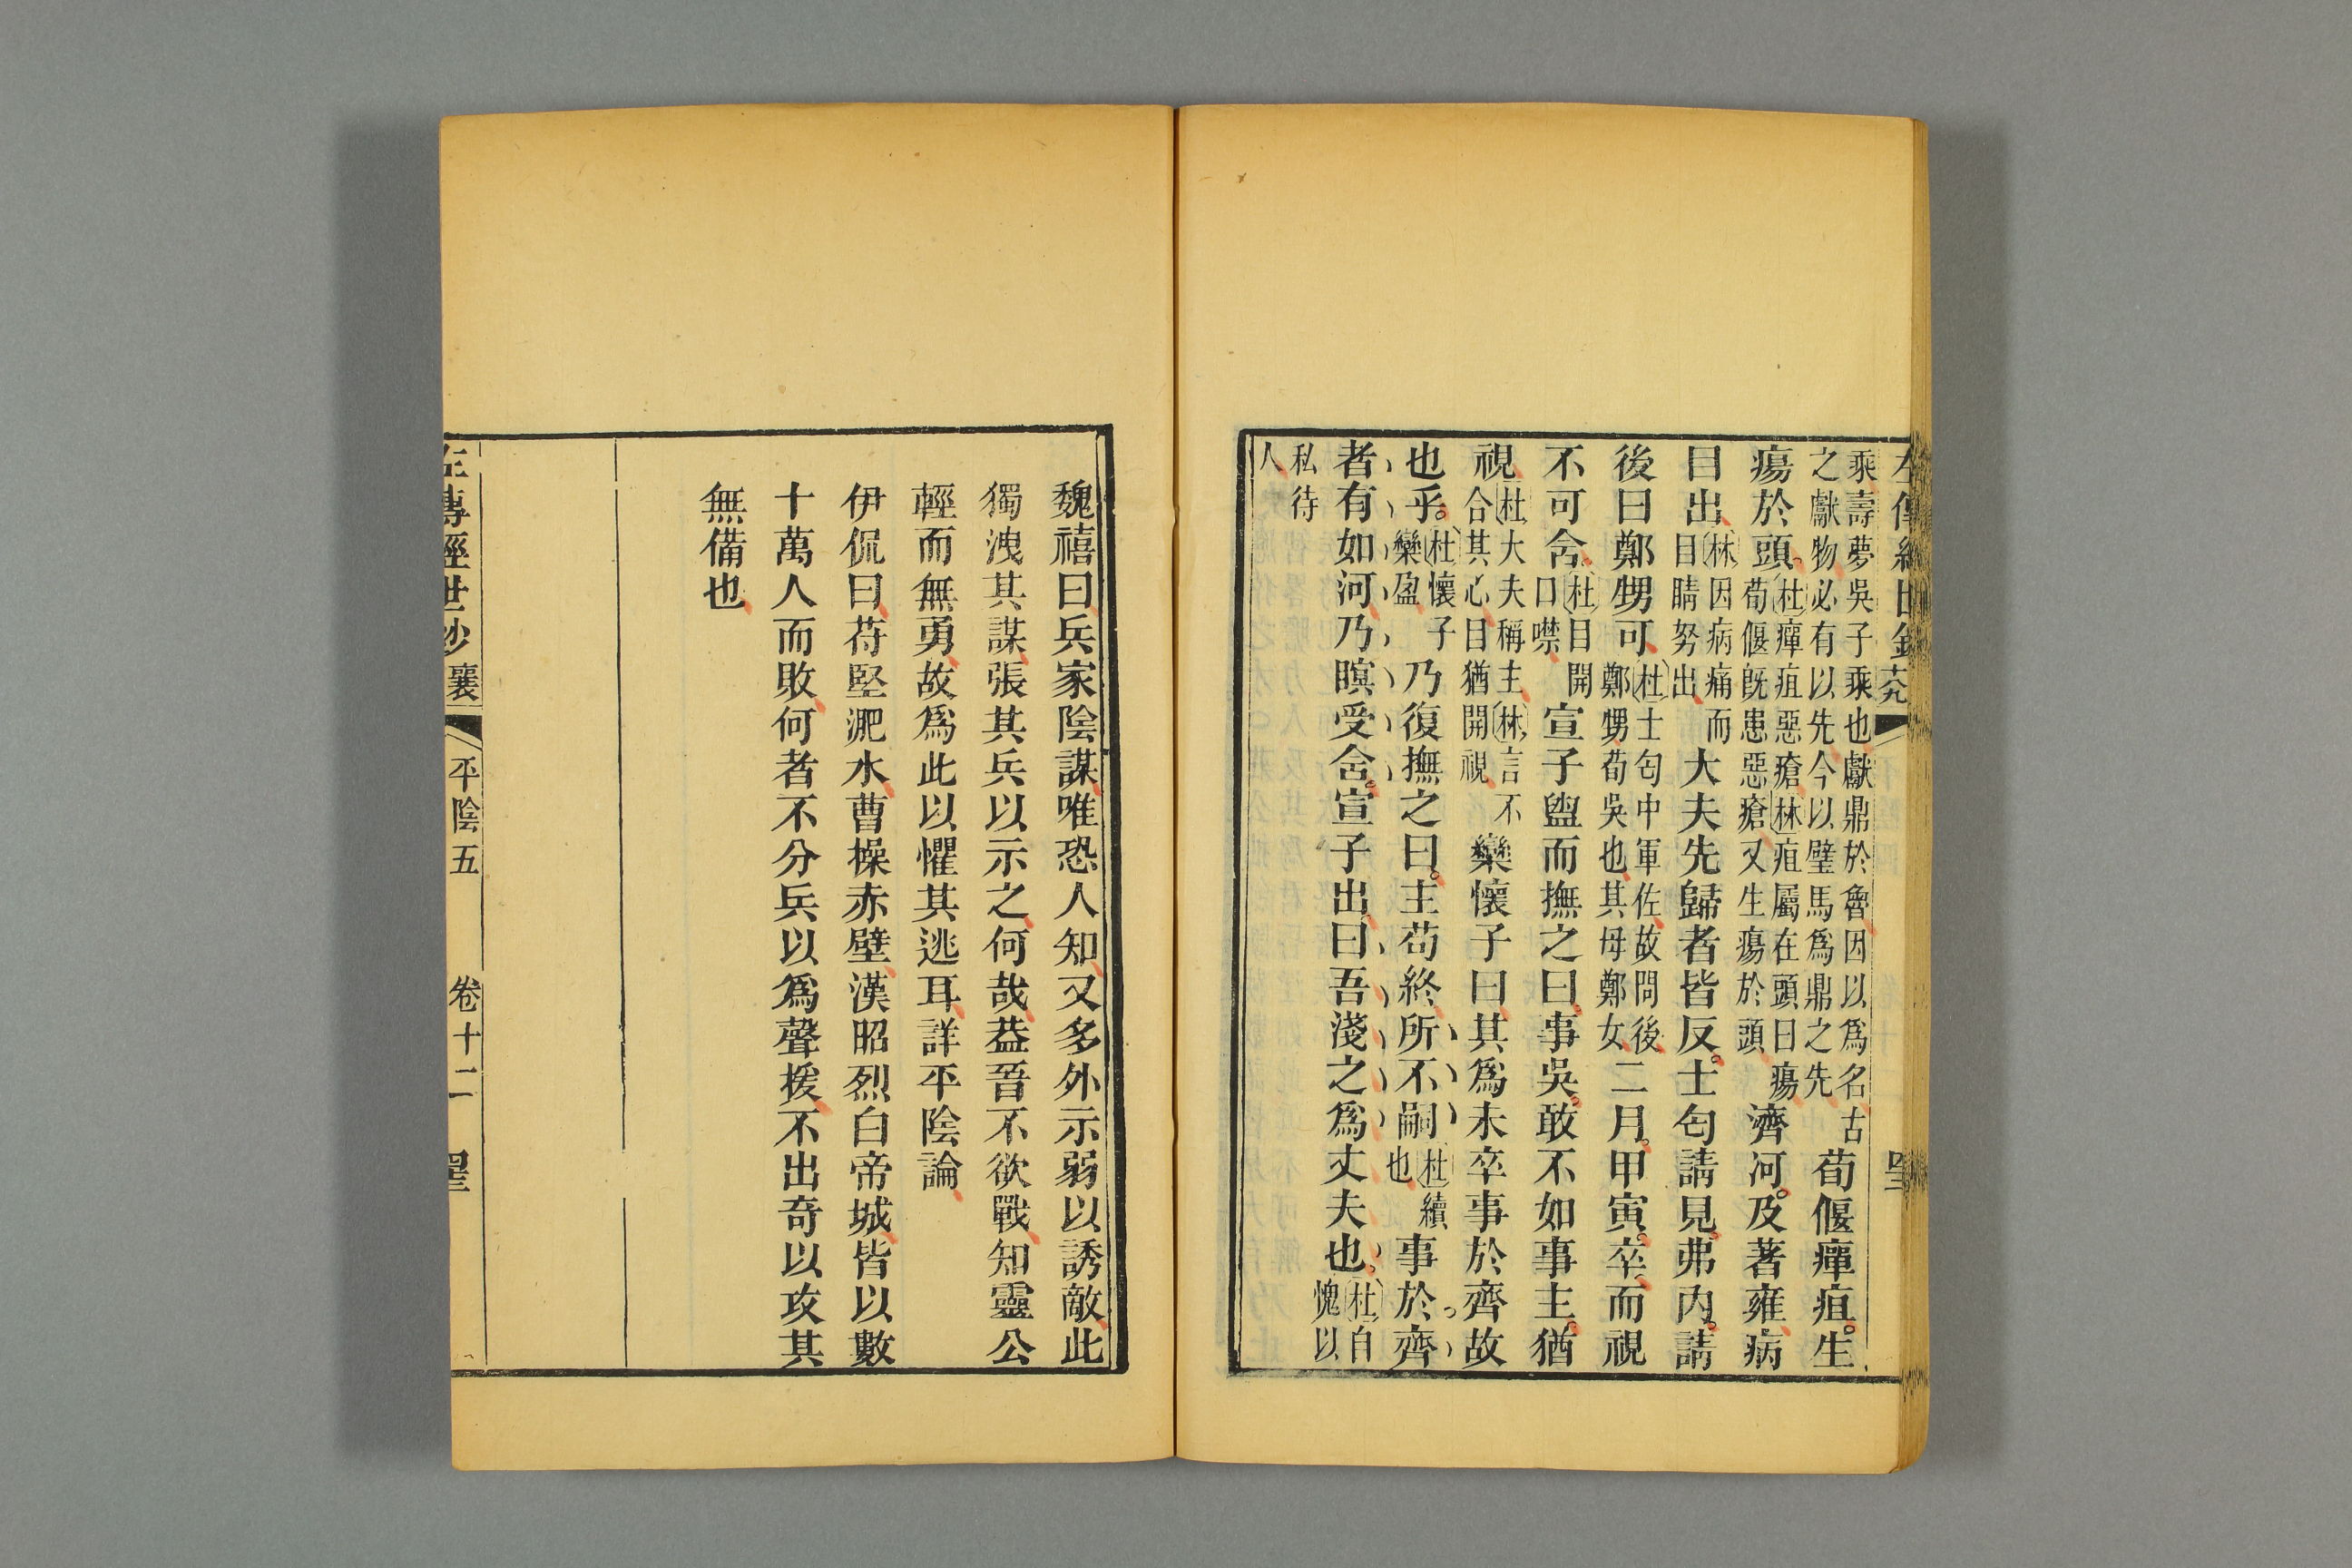 乘壽夢吳子乘也獻鼎於魯因以爲名古
之獻物必有以先今以璧馬爲鼎之先
荀偃癉疽。生
瘍於頭。
杜癉疽惡瘡林疽屬在頭曰瘍
荀偃旣患惡瘡又生瘍於頭
濟河。及著雍病
目出
林因病痛而
目睛努出
大夫先歸者皆反。士匄請見。弗內。請
後曰鄭甥可
杜士匄中軍佐故問後
鄭甥荀吳也其母鄭女
二月。甲寅。卒而視
不可含。
杜目開
口噤
宣子盥而撫之曰事吳。敢不如事主。猶
視
杜大夫稱主林言不
合其心目猶開視
欒懷子曰其爲未卒事於齊故
也乎。
杜懷子
欒盈
乃復撫之曰。主苟終所不嗣
杜續
也
事於齊
者有如河乃瞑受含。宣子出曰吾淺之爲丈夫也。
杜自
愧以
私待
人
魏禧曰兵家陰謀唯恐人知又多外示弱以誘敵此
獨洩其謀張其兵以示之何哉葢晉不欲戰知靈公
輕而無勇故爲此以懼其逃耳詳平陰論
伊侃曰苻堅淝水曹操赤壁漢昭烈白帝城皆以數
十萬人而敗何者不分兵以爲聲援不出奇以攻其
無備也
左傳經世鈔襄
平陰五
卷十二